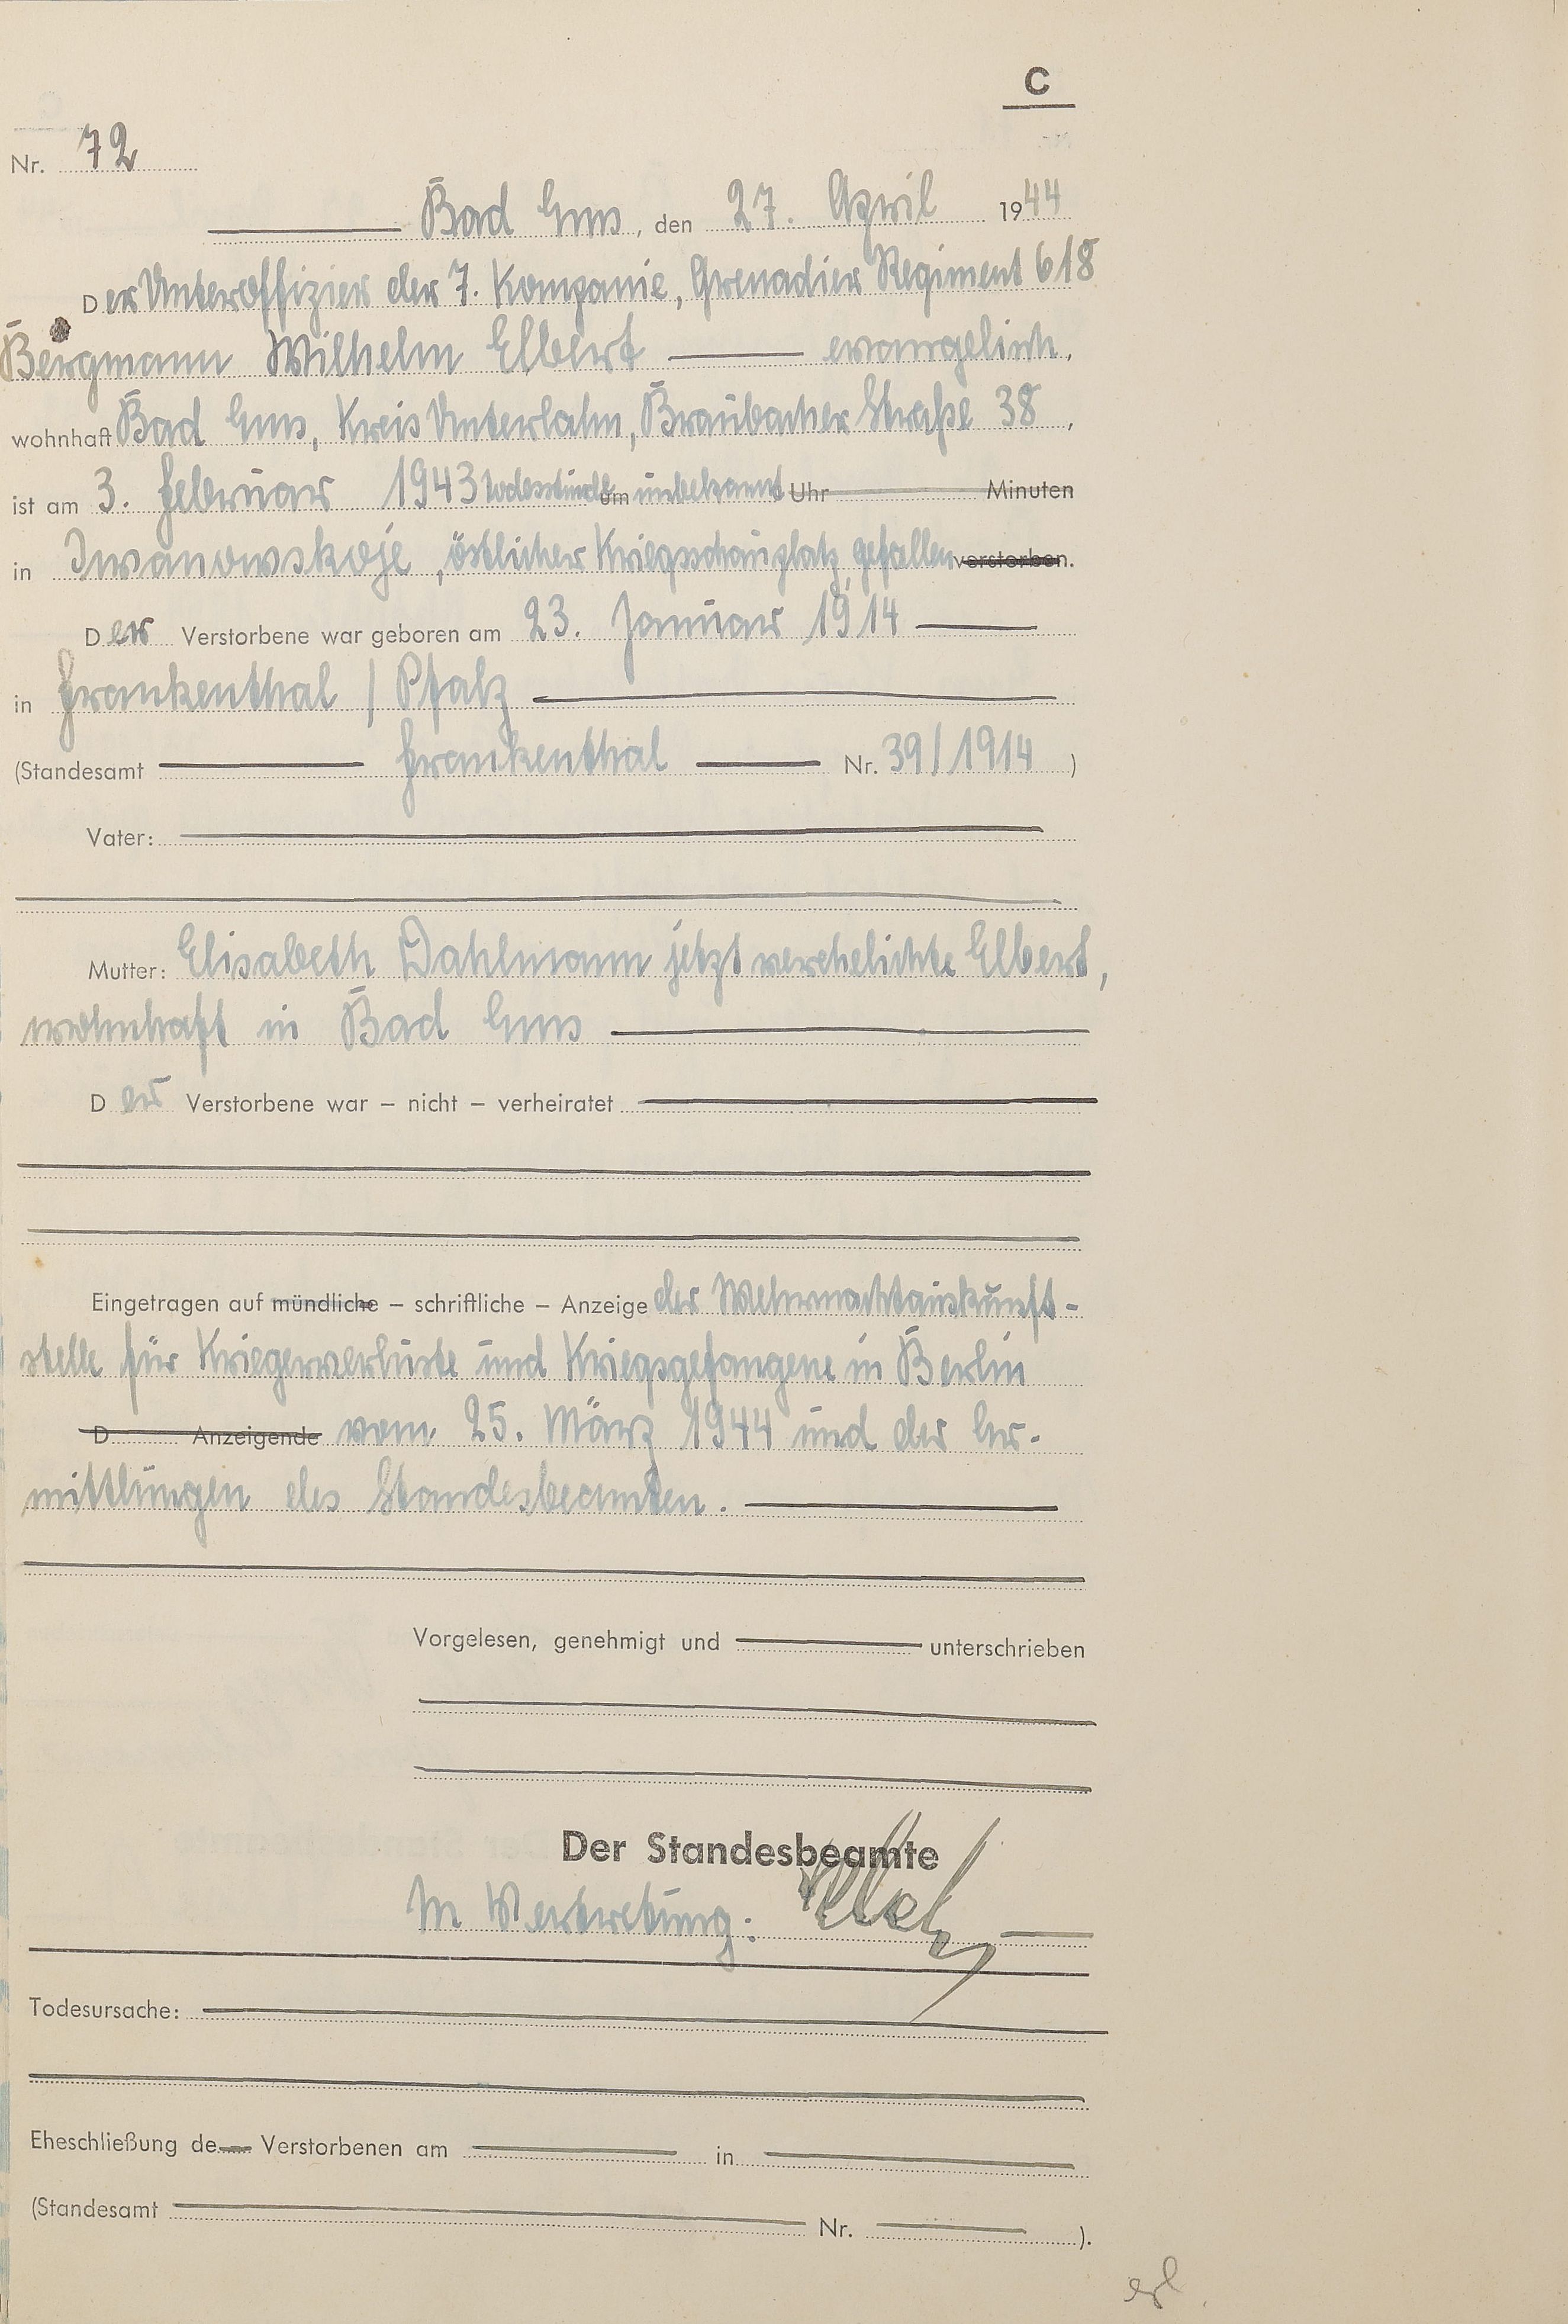 C
Nr. 72
Bad Ems, den 27. April 1944
Der Unteroffizier der 7. Kompanie, Grenadier Regiment 618
Bergmann Wilhelm Elbert evangelisch,
wohnhaft Bad Ems, Kreis Unterlahn, Braubacher Straße 38,
ist am 3. Februar 1943 Todesstunde um unbekannt Uhr Minuten
in Iwanowskoje, östlicher Kriegsschauplatz, gefallen verstorben.
Der Verstorbene war geboren am 23. Januar 1914
in Frankenthal / Pfalz
(Standesamt Frankenthal Nr. 39/1914)
Vater:
Mutter: Elisabeth Dahlmann jetzt verehelichte Elbert,
wohnhaft in Bad Ems
Der Verstorbene war – nicht – verheiratet
Eingetragen auf mündliche – schriftliche – Anzeige der Wehrmachtauskunft-
stelle für Kriegerverluste und Kriegsgefangene in Berlin
D Anzeigende vom 25. März 1944 und der Er-
mittlungen des Standesbeamten.
Vorgelesen, genehmigt und unterschrieben
Der Standesbeamte
In Vertretung:
Todesursache:
Eheschließung de Verstorbenen am in
(Standesamt Nr. ).
erl